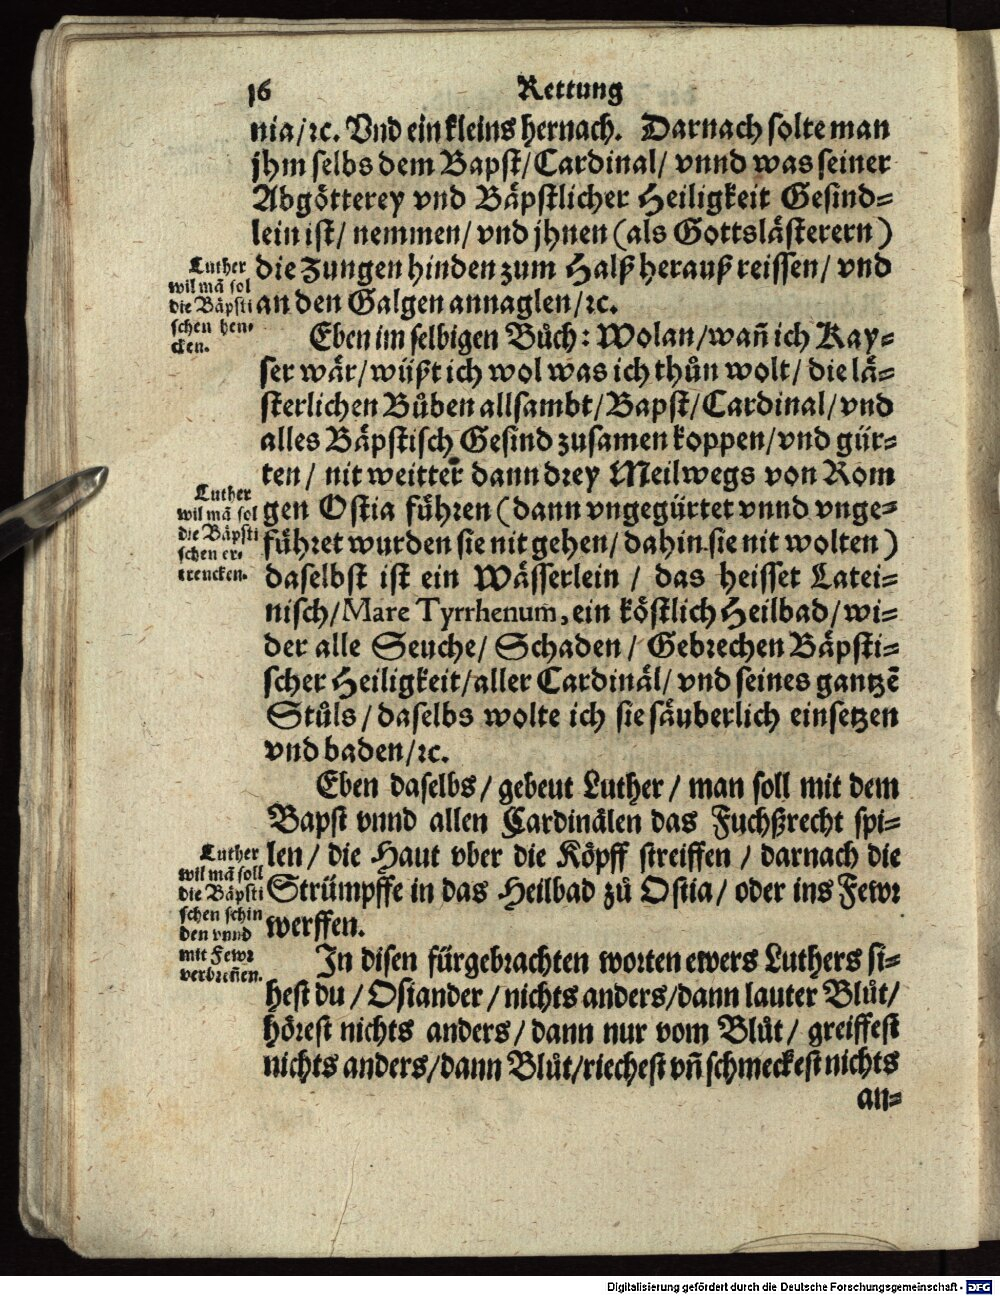 16 Rettung
nia/ꝛc. Vnd ein kleins hernach. Darnach solte man
jhm selbs dem Bapst/Cardinal/ vnnd was seiner
Abgötterey vnd Bäpstlicher Heiligkeit Gesind=
lein ist/ nemmen/ vnd jhnen (als Gottslästerern)
die Zungen hinden zum Halß herauß reissen/ vnd
an den Galgen annaglen/ꝛc.
Luther
wil mā sol
die Bäpsti
schen hen=
cken.
Eben im selbigen Bůch: Wolan/wañ ich Kay=
ser wär/wüßt ich wol was ich thůn wolt/ die lä=
sterlichen Bůben allsambt/Bapst/Cardinal/vnd
alles Bäpstisch Gesind zusamen koppen/vnd gür=
ten/ nit weitter dann drey Meilwegs von Rom
gen Ostia führen (dann vngegürtet vnnd vnge=
führet wurden sie nit gehen/ dahin sie nit wolten)
daselbst ist ein Wässerlein / das heisset Latei=
nisch/Mare Tyrrhenum, ein köstlich Heilbad/wi=
der alle Seuche/ Schaden / Gebrechen Bäpsti=
scher Heiligkeit/aller Cardinäl/ vnd seines gantzē
Stůls / daselbs wolte ich sie säuberlich einsetzen
vnd baden/ꝛc.
Luther
wil mā sol
die Bäpsti
schen er=
trencken.
Eben daselbs / gebeut Luther / man soll mit dem
Bapst vnnd allen Cardinälen das Fuchßrecht spi=
len / die Haut vber die Köpff streiffen / darnach die
Strümpffe in das Heilbad zů Ostia/ oder ins Fewr
werffen.
Luther
wil mā soll
die Bäpsti
schen schin
den vnnd
mit Fewr
verbreñen.
In disen fürgebrachten worten ewers Luthers si=
hest du / Osiander / nichts anders/dann lauter Blůt/
hörest nichts anders/ dann nur vom Blůt/ greiffest
nichts anders/dann Blůt/riechest vñ schmeckest nichts
an=
Digitalisierung gefördert durch die Deutsche Forschungsgemeinschaft - DFG